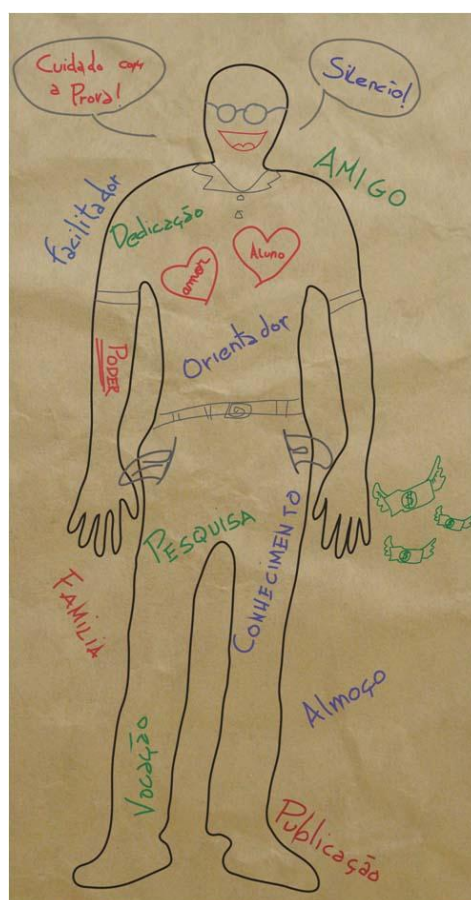 Cuidado com
a Prova!
Silencio!
AMIGO
Facilitador
Dedicação
amor
Aluno
Orientador
PODER
PESQUISA
CONHECIMENTO
FAMILIA
Almoço
Vocação
Publicação
$
$
$